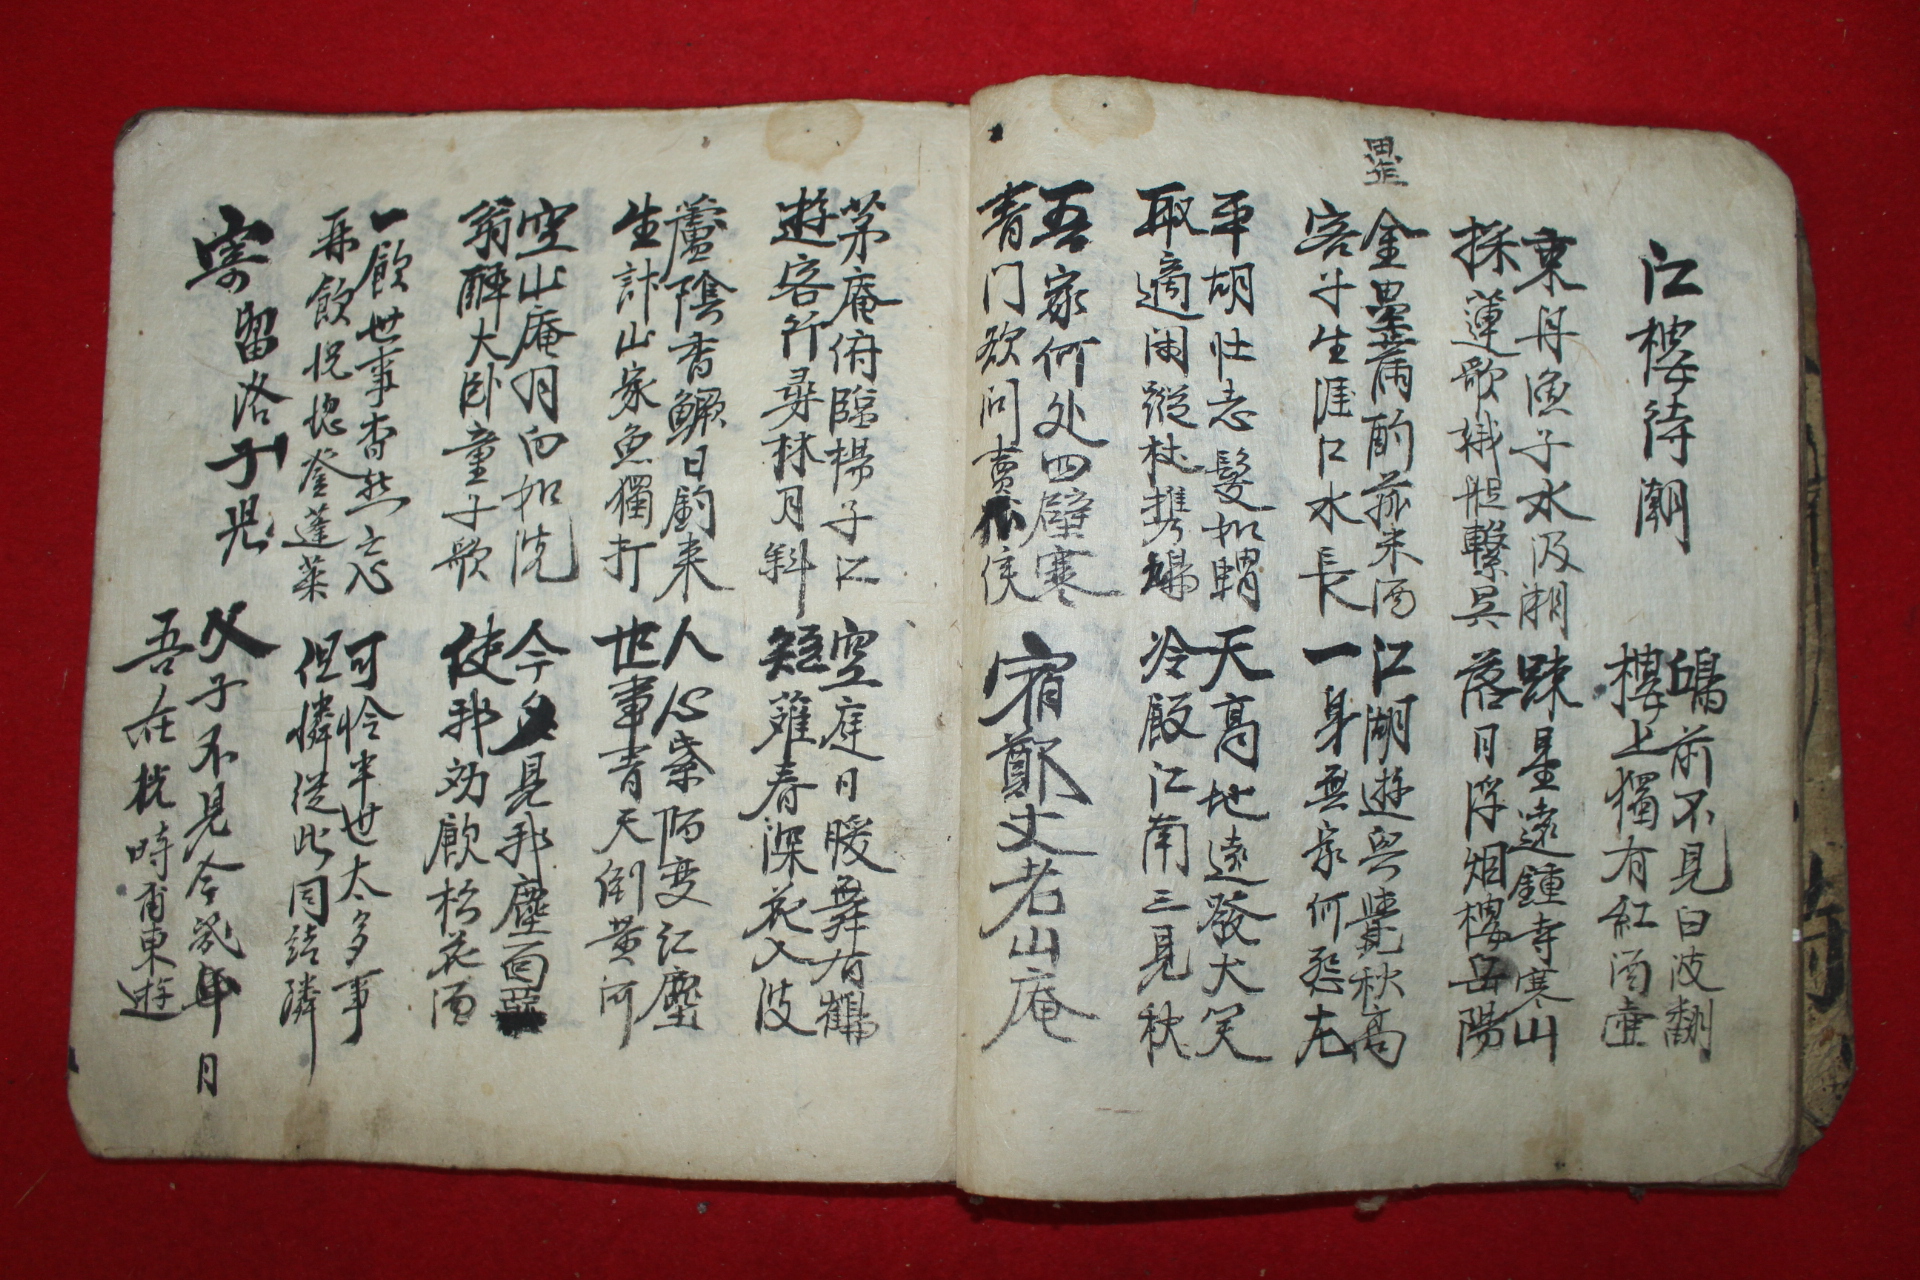 江樓待潮
前不見白波翻
樓上獨有紅酒壺
東舟漁子水汲潮
採蓮歌娥艇繫吳
踈星遠鍾寺寒山
落日浮烟樓岳陽
壘
金壘滿酌菰米酒
客子生涯江水長
江湖遊興覺秋高
一身無家何怨尤
平胡壯志髮如蝟
取適閑蹤杖携鳩
天高地遠發大笑
冷殿江南三見秋
吾家何处四壁寒
青门欲问賣瓜侯
宿鄭丈老山庵
茅庵俯臨楊子江
遊客行尋林月斜
空庭日暖舞有鶴
短蘺春深花入波
蘆陰香鱖日釣来
生計山家魚獨打
人心紫陌变江塵
世事青天倒黄河
空山庵月白如洗
翁醉大卧童子歌
今夕見我塵面
使我効飮松花酒
一飮世事杳然忘
再飮怳惚登蓬萊
可怜半世太多事
但憐從此同結隣
寄留洛子児
父子不見今幾年月
吾在杭時甫東遊